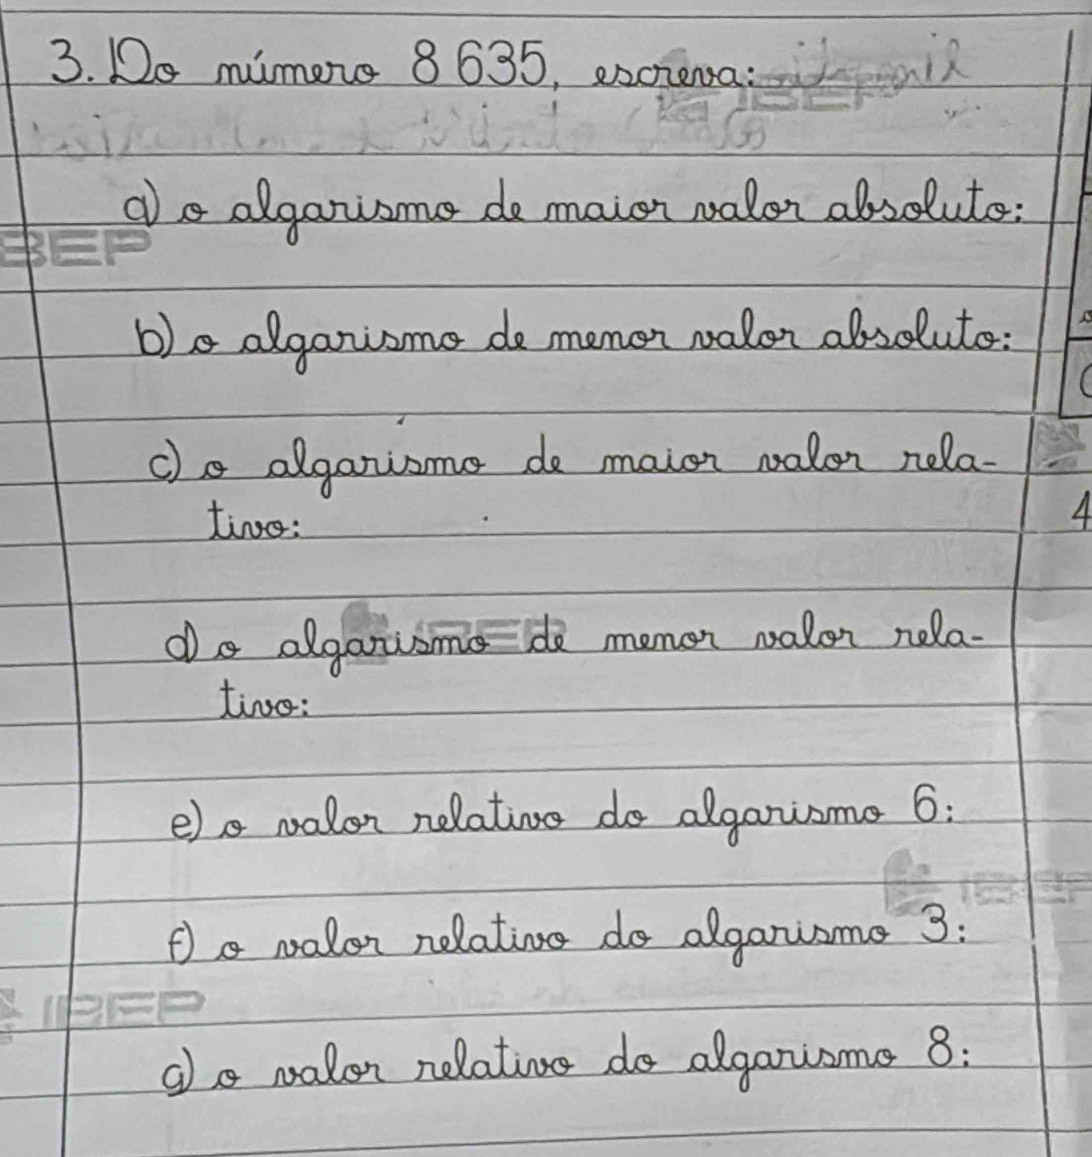 3. Do número 8 635, escreva:
IBEP
a) o algarismo de maior valor absoluto:
BEP
b) o algarismo de menor valor absoluto:
c) o algarismo de maior valor rela-
tivo:
4
d) o algarismo de menor valor rela-
tivo:
IBEP
e) o valor relativo do algarismo 6:
IBEP
f) o valor relativo do algarismo 3:
IBEP
g) o valor relativo do algarismo 8: